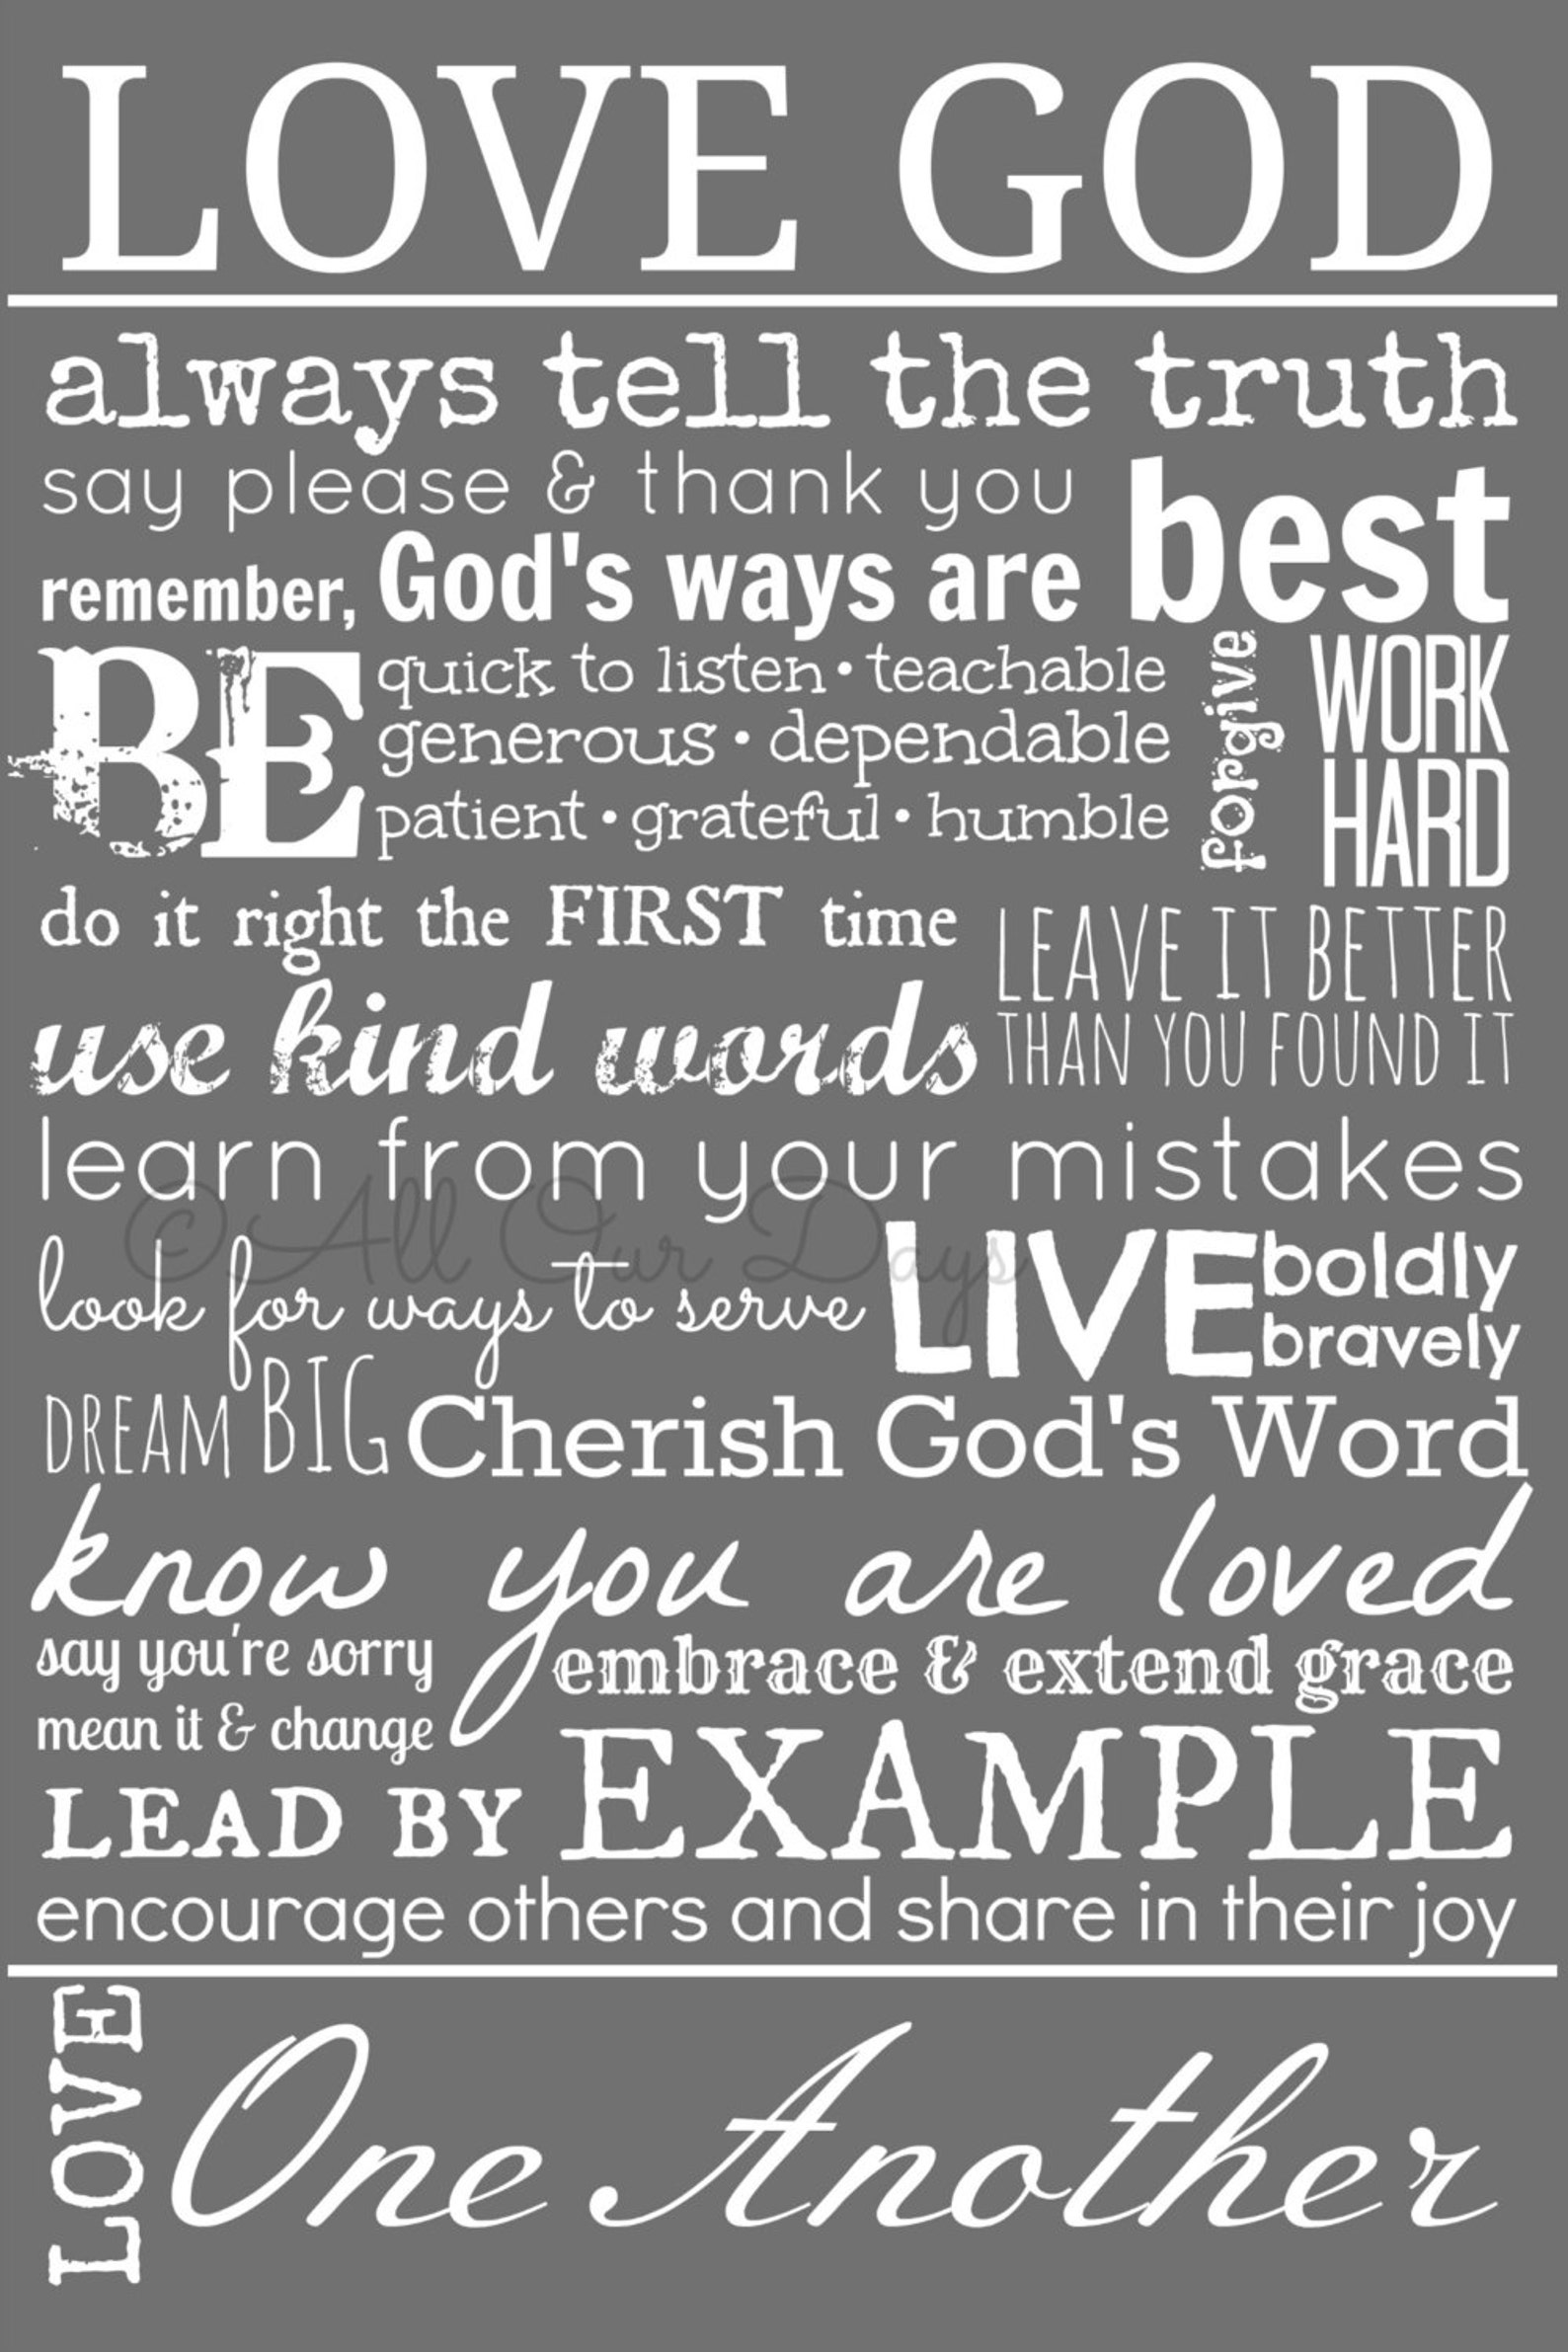 LOVE GOD
always tell the truth
say please & thank you
remember, God's ways are best
BE
quick to listen • teachable
generous • dependable
patient • grateful • humble
forgive
WORK
HARD
do it right the FIRST time
LEAVE IT BETTER
THAN YOU FOUND IT
use kind words
learn from your mistakes
©All Our Days
look for ways to serve
LIVE
boldly
bravely
DREAM BIG
Cherish God's Word
know you are loved
say you're sorry
mean it & change
embrace & extend grace
LEAD BY EXAMPLE
encourage others and share in their joy
LOVE
One Another